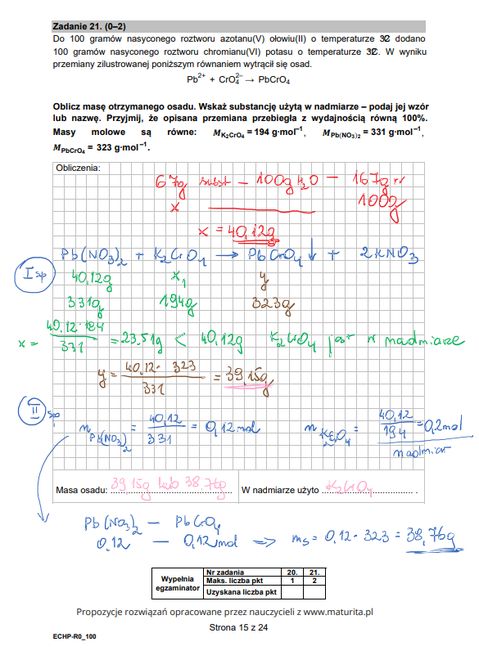 Zadanie 21. (0–2)
Do 100 gramów nasyconego roztworu azotanu(V) ołowiu(II) o temperaturze 32 dodano
100 gramów nasyconego roztworu chromianu(VI) potasu o temperaturze 32. W wyniku
przemiany zilustrowanej poniższym równaniem wytrącił się osad.
Pb²⁺ + CrO₄²⁻ → PbCrO₄
Oblicz masę otrzymanego osadu. Wskaż substancję użytą w nadmiarze – podaj jej wzór
lub nazwę. Przyjmij, że opisana przemiana przebiegła z wydajnością równą 100%.
Masy molowe są równe: M K₂CrO₄ = 194 g·mol⁻¹, M Pb(NO₃)₂ = 331 g·mol⁻¹,
M PbCrO₄ = 323 g·mol⁻¹.
Obliczenia:
67g subst – 100g H₂O – 167g
x 100g
x = 40,12g
Pb(NO₃)₂ + K₂CrO₄ → PbCrO₄↓ + 2KNO₃
I sp
40,12g x₁ y
331g 194g 323g
x = 40,12·194 / 331 = 23,51g < 40,12g K₂CrO₄ jest w nadmiarze
y = 40,12·323 / 331 = 39,15g
II sp.
n Pb(NO₃)₂ = 40,12 / 331 = 0,12mol n K₂CrO₄ = 40,12 / 194 = 0,2mol
nadmiar
Masa osadu: 39,15g lub 38,76g W nadmiarze użyto K₂CrO₄
Pb(NO₃)₂ – PbCrO₄
0,12 – 0,12mol ⇒ ms = 0,12·323 = 38,76g
Wypełnia egzaminator Nr zadania 20. 21.
Maks. liczba pkt 1 2
Uzyskana liczba pkt
Propozycje rozwiązań opracowane przez nauczycieli z www.maturita.pl
Strona 15 z 24
ECHP-R0_100